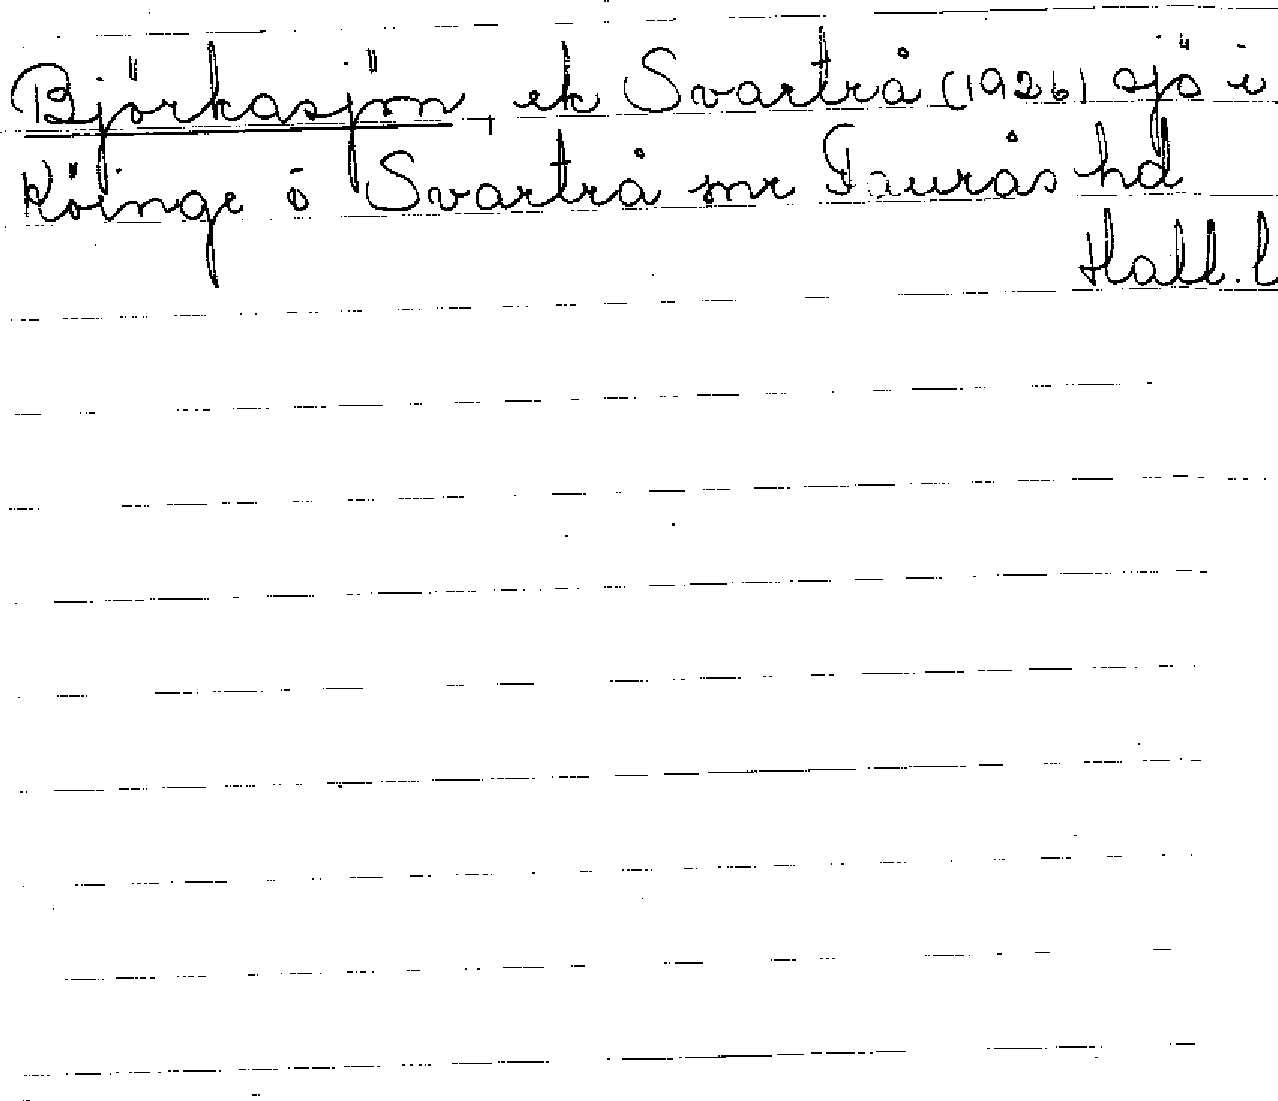 Björkasjön, ek Svartrå (1926) sjö i
Köinge o Svartrå snr Faurås hd
Hall. l